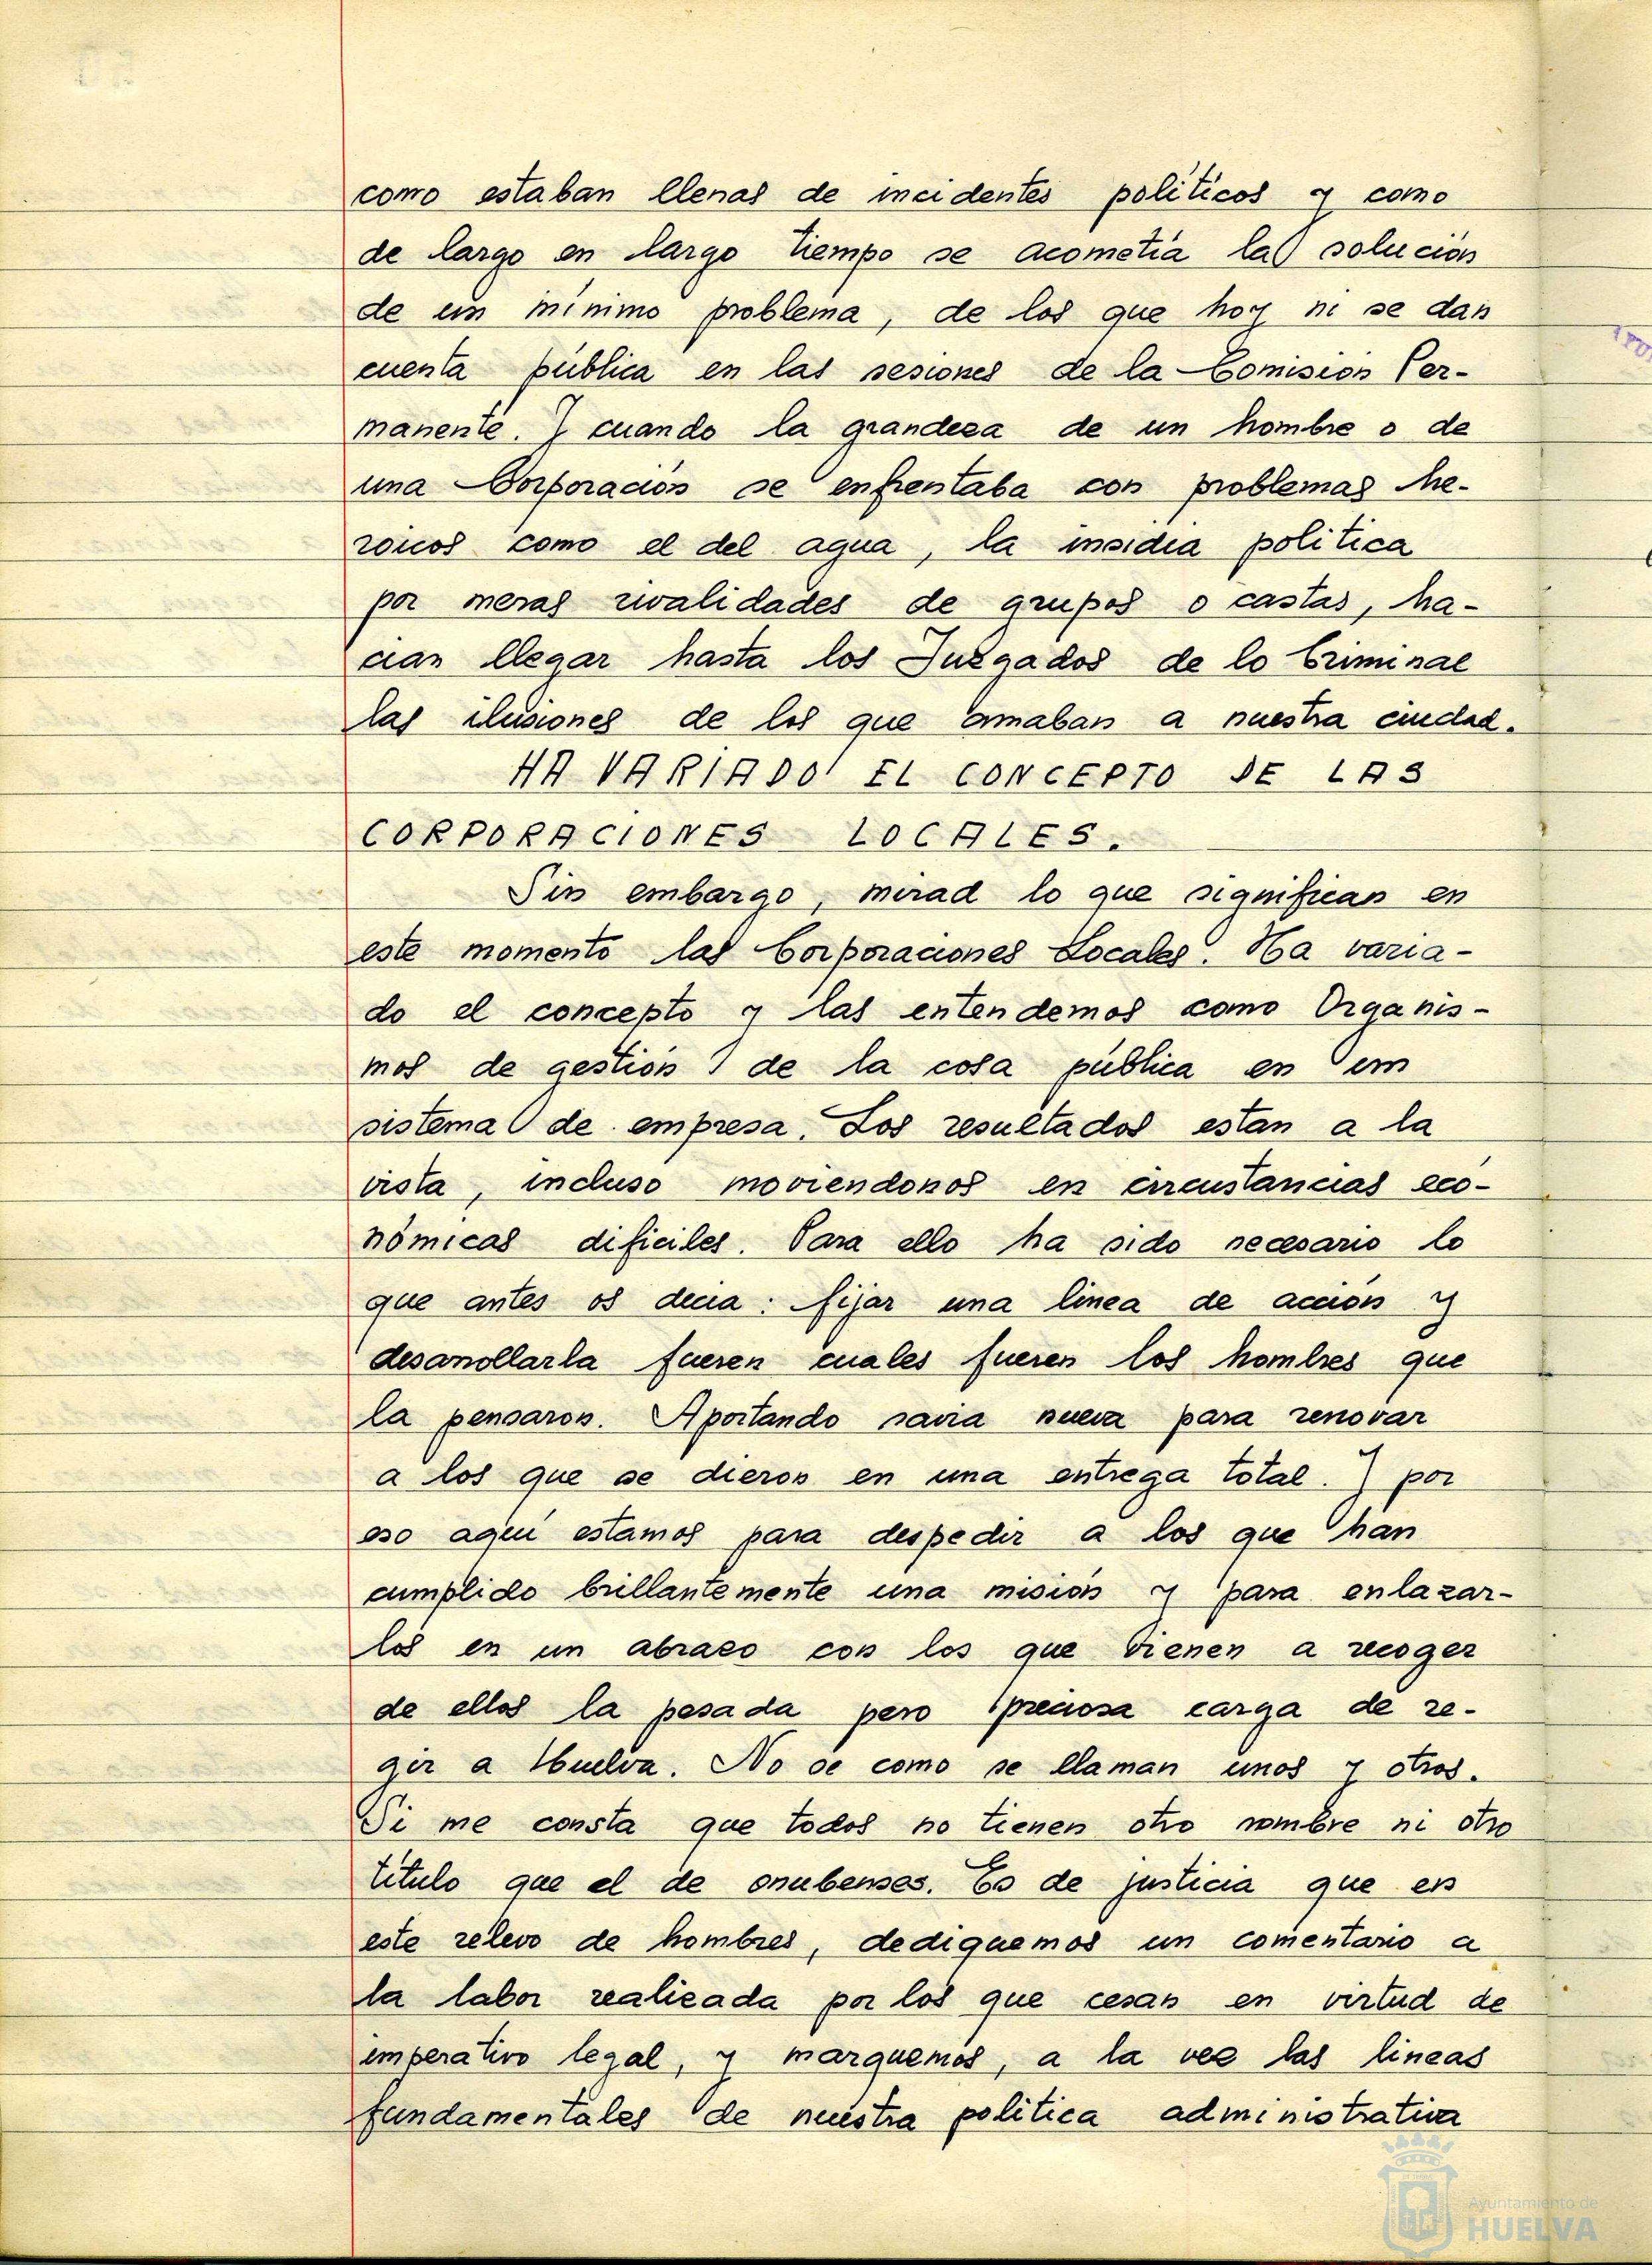 como estaban llenas de incidentes politicos y como
de largo en largo tiempo se acometía la solución
de un mínimo problema, de los que hoy ni se dan
cuenta pública en las sesiones de la Comisión Per-
manente. Y cuando la grandeza de un hombre o de
una Corporación se enfrentaba con problemas he-
roicos como el del agua, la insidia politica
por meras rivalidades de grupos o castas, ha-
cian llegar hasta los Juzgados de lo Criminal
las ilusiones de los que amaban a nuestra ciudad.
HA VARIADO EL CONCEPTO DE LAS
CORPORACIONES LOCALES.
Sin embargo, mirad lo que significan en
este momento las Corporaciones Locales. Ha varia-
do el concepto y las entendemos como Organis-
mos de gestión de la cosa pública en un
sistema de empresa. Los resultados estan a la
vista, incluso moviendonos en circustancias eco-
nómicas dificiles. Para ello ha sido necesario lo
que antes os decia: fijar una linea de acción y
desarrollarla fueren cuales fueren los hombres que
la pensaron. Aportando savia nueva para renovar
a los que se dieron en una entrega total. Y por
eso aquí estamos para despedir a los que han
cumplido brillantemente una misión y para enlazar-
los en un abrazo con los que vienen a recoger
de ellos la pesada pero preciosa carga de re-
gir a Huelva. No se como se llaman unos y otros.
Si me consta que todos no tienen otro nombre ni otro
titulo que el de onubenses. Es de justicia que en
este relevo de hombres, dediquemos un comentario a
la labor realizada por los que cesan en virtud de
imperativo legal, y marquemos, a la vez las lineas
fundamentales de nuestra politica administrativa
Ayuntamiento de
HUELVA